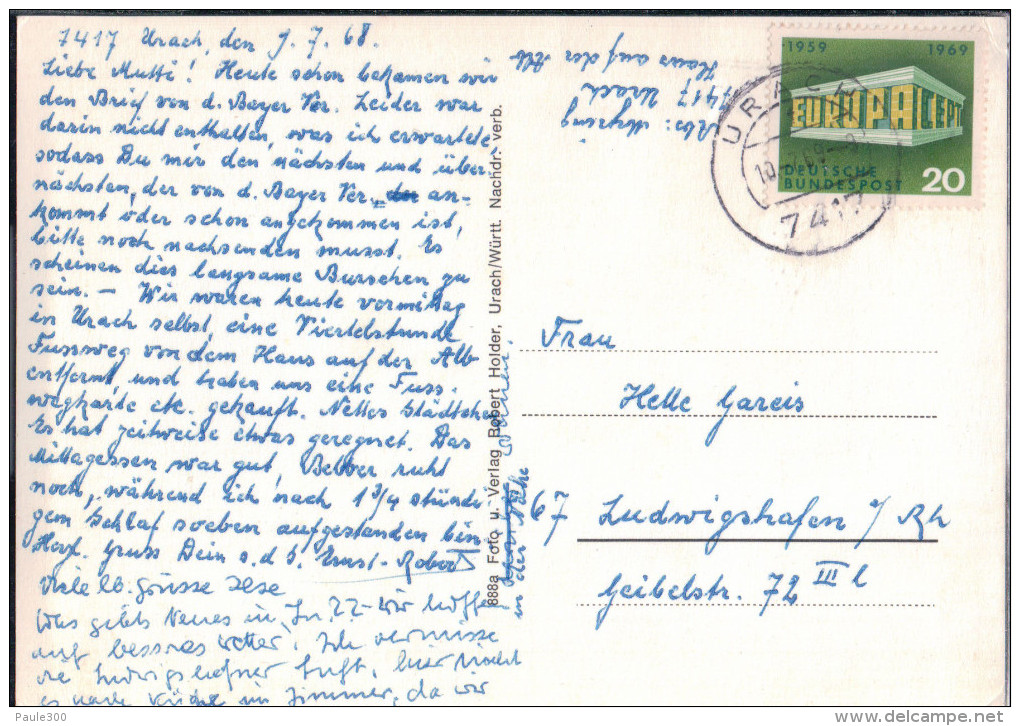 7417 Urach, den 9.7.68.
Liebe Mutti! Heute schon bekamen wir
den Brief von d. Bayer Ver. Leider war
darin nicht enthalten, was ich erwartete,
sodass Du mir den nächsten und über-
nächsten, der von d. Bayer Ver. an-
kommt oder schon angekommen ist,
bitte noch nachsenden musst. Es
scheinen dies langsame Burschen zu
sein. – Wir waren heute vormittag
in Urach selbst, eine Viertelstunde
Fussweg von dem Haus auf der Alb
entfernt, und haben uns eine Fuss-
wegkarte etc. gekauft. Nettes Städtchen
Es hat zeitweise etwas geregnet. Das
Mittagessen war gut, Bebber ruht
noch, während ich nach 1 3/4 stündi-
gem Schlaf soeben aufgestanden bin
Herzl. Gruss Dein s.d.S. Ernst-Robert
Viele lb. Grüsse
was gibts Neues in Zi. 22 – wir hoffen
auf besseres Wetter. Ich vermisse
die Ludwigshafner Luft, hier riecht
es nach Küche im Zimmer, da wir
in der Nähe wohnen.
888a Foto u. Verlag Robert Holder, Urach/Württ. Nachdr. verb.
Abs:
7417 Urach
Haus auf der Alb
1959 1969
EUROPA CEPT
DEUTSCHE
BUNDESPOST 20
URACH
7417
Frau
Helle Gareis
67 Ludwigshafen a/Rh
Geibelstr. 72 III l
Paule300
www.delcampe.net